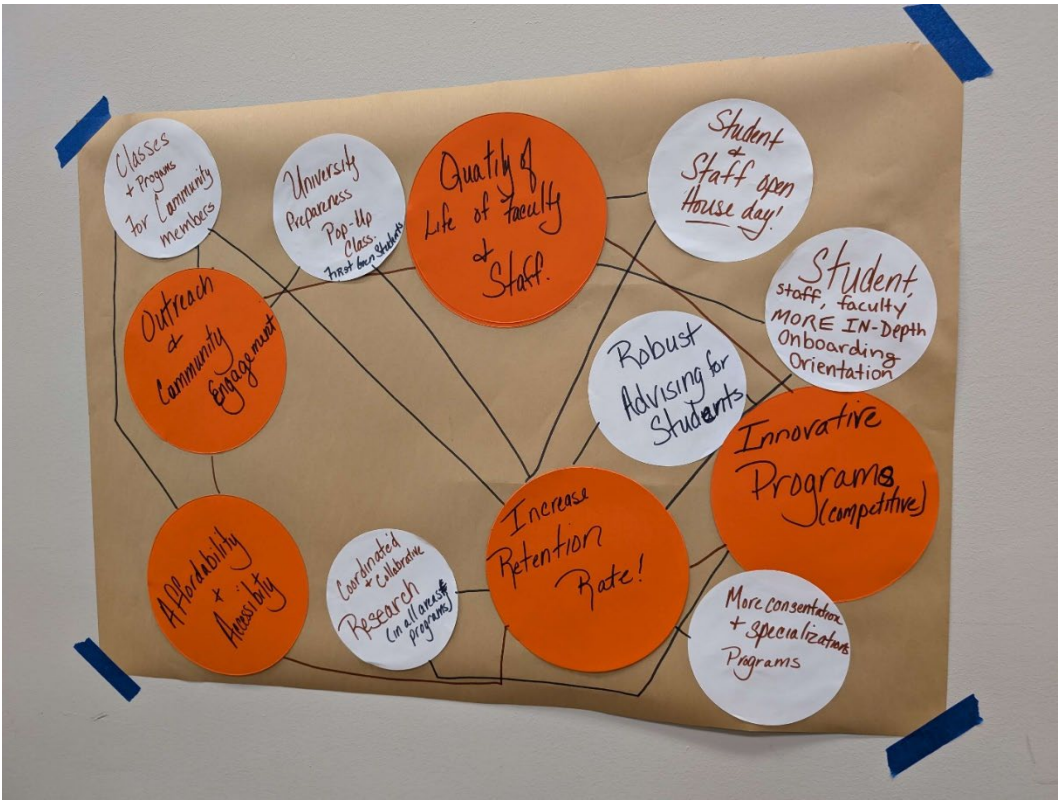 Classes
+ Progams
For Community
members
University
Prepareness
Pop-Up
Class.
First Gen Students
Quatily of
Life of Faculty
&
Staff.
Student
&
Staff open
House day!
Student,
staff, faculty
MORE IN-Depth
Onboarding
Orientation
Outreach
&
Community
Engagement
Robust
Advising for
Students
Innovative
Programs
(competitive)
Affordability
+
Accessibility
Coordinated
+ Collabrative
Research
(in all areas &
programs)
Increase
Retention
Rate!
More consentration
+ specializations
Programs